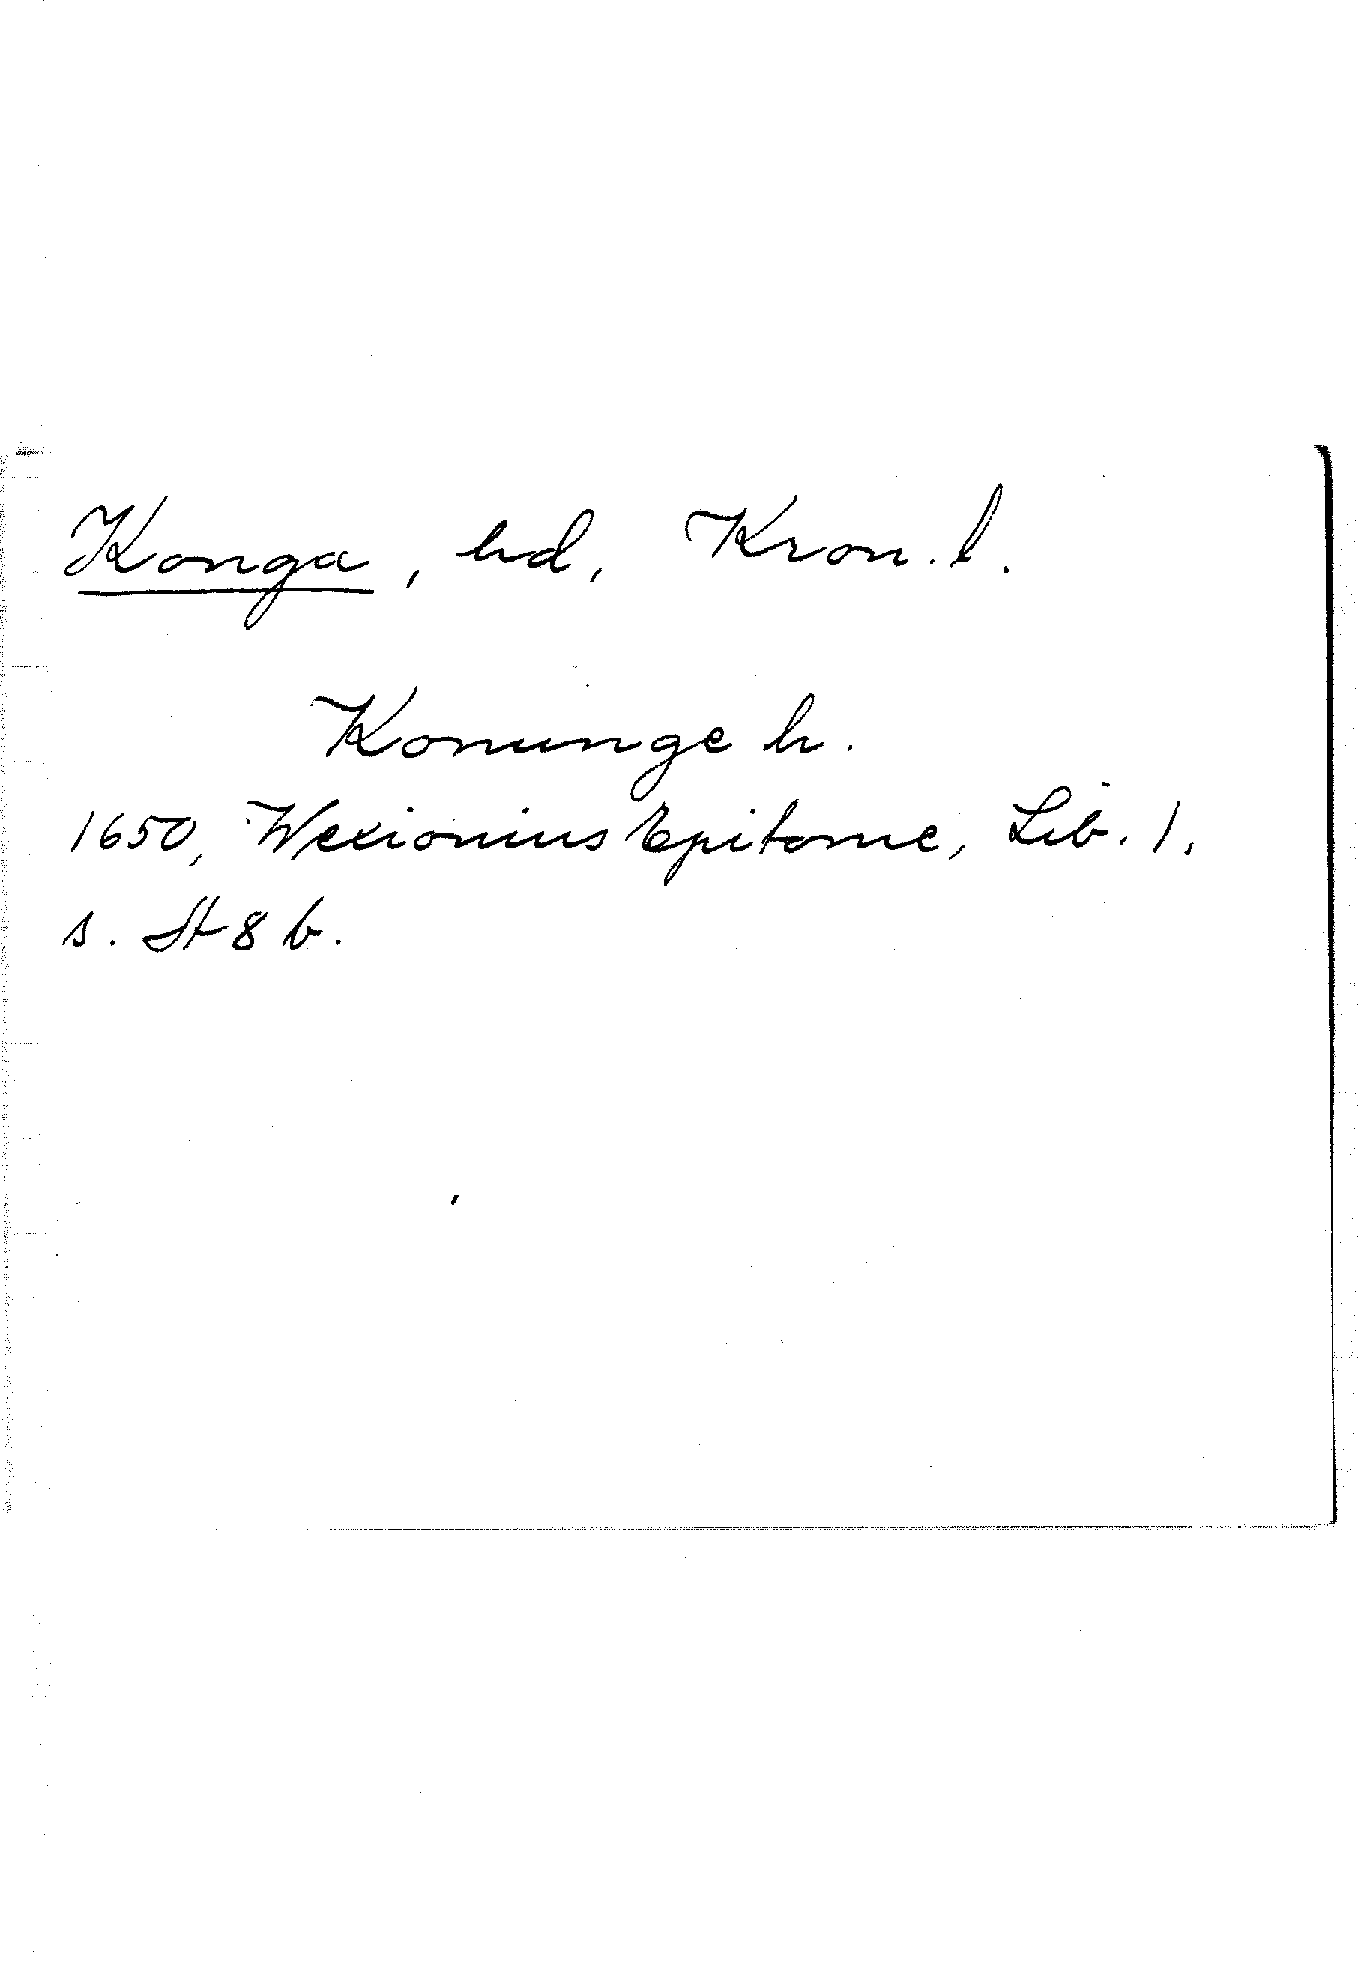 Konga, hd, Kron. l.
Konunge h.
1650, Wexionius Epitome, Lib. 1,
s. H 8 b.